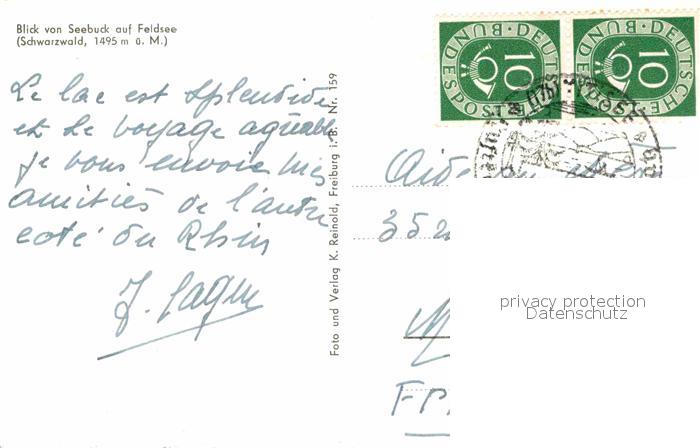 Blick von Seebuck auf Feldsee
(Schwarzwald, 1495 m ü. M.)
Le lac est splendide
et le voyage agréable
je vous envoie mes
amitiés de l'autre
coté du Rhin
Foto und Verlag K. Reinold, Freiburg i. B. Nr. 159
DEUTSCHE BUNDESPOST
10
DEUTSCHE BUNDESPOST
10
352
privacy protection
Datenschutz